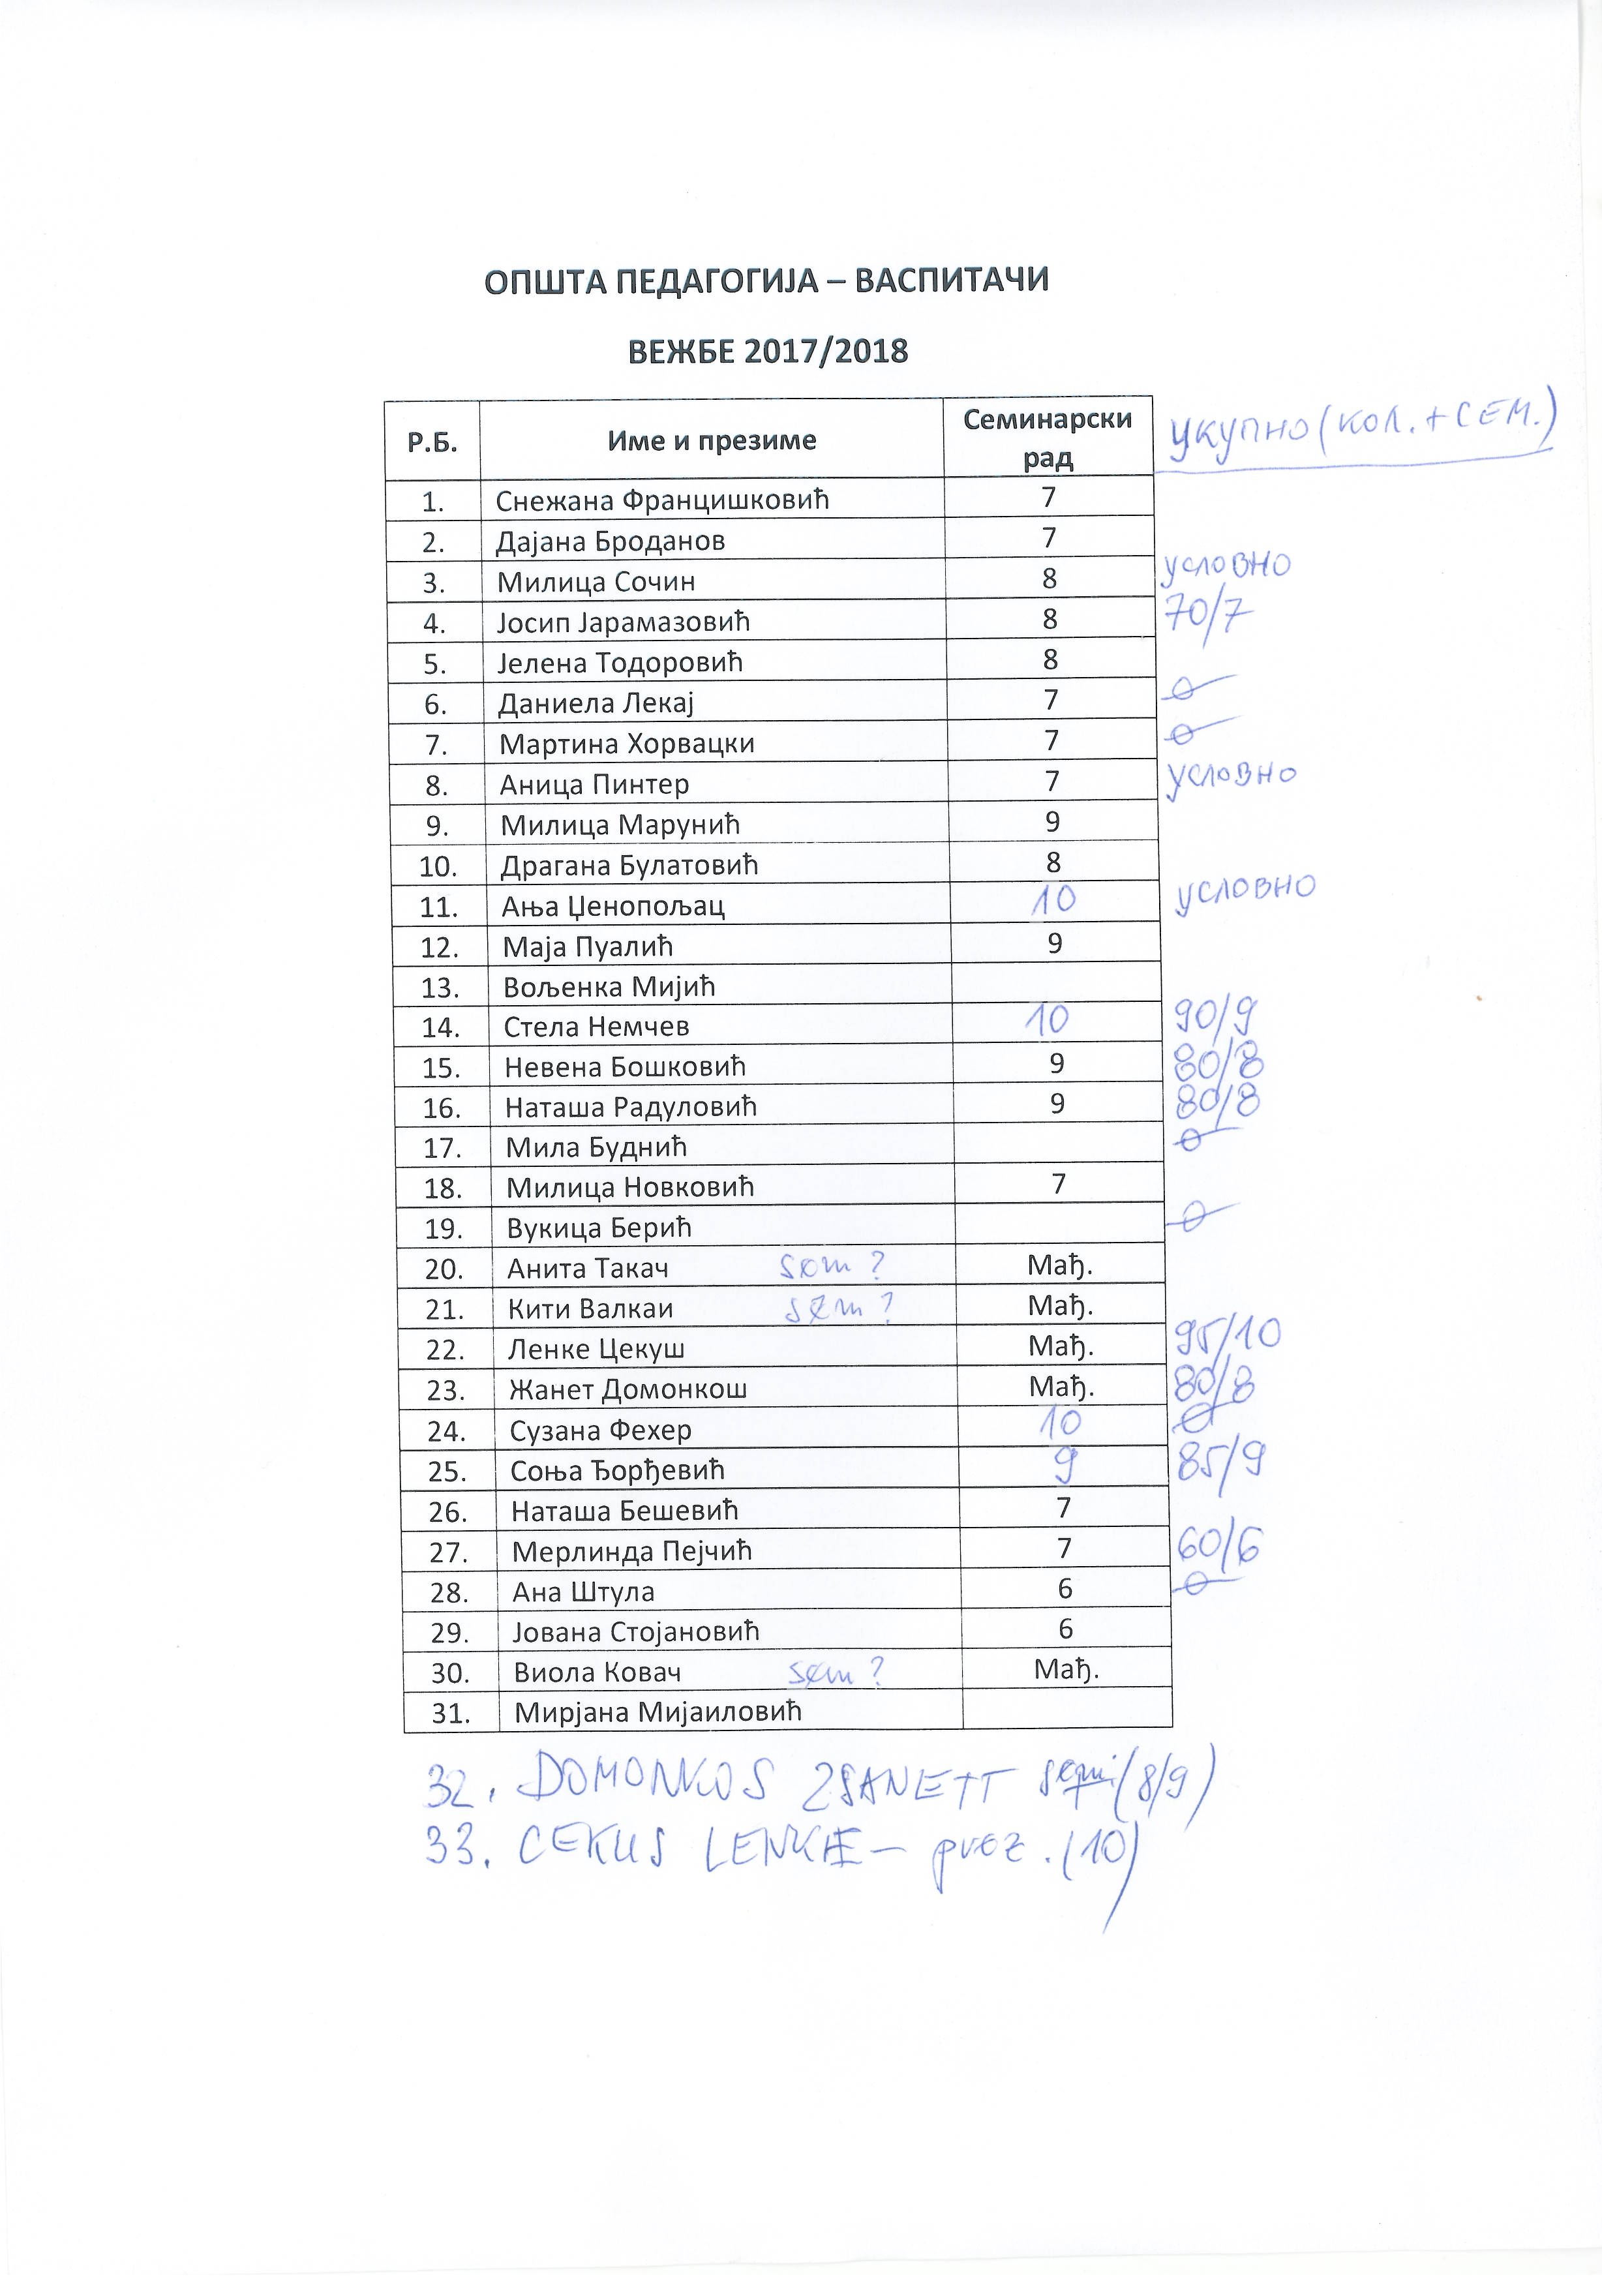 ОПШТА ПЕДАГОГИЈА – ВАСПИТАЧИ
ВЕЖБЕ 2017/2018
Р.Б. Име и презиме Семинарски рад УКУПНО (КОЛ. + СЕМ.)
1. Снежана Францишковић 7
2. Дајана Броданов 7
3. Милица Сочин 8 УСЛОВНО
4. Јосип Јарамазовић 8 70/7
5. Јелена Тодоровић 8
6. Даниела Лекај 7
7. Мартина Хорвацки 7
8. Аница Пинтер 7 УСЛОВНО
9. Милица Марунић 9
10. Драгана Булатовић 8
11. Ања Џенопољац 10 УСЛОВНО
12. Маја Пуалић 9
13. Вољенка Мијић
14. Стела Немчев 10 90/9
15. Невена Бошковић 9 80/8
16. Наташа Радуловић 9 80/8
17. Мила Буднић
18. Милица Новковић 7
19. Вукица Берић
20. Анита Такач sem ? Мађ.
21. Кити Валкаи sem ? Мађ.
22. Ленке Цекуш Мађ. 95/10
23. Жанет Домонкош Мађ. 80/8
24. Сузана Фехер 10
25. Соња Ђорђевић 9 85/9
26. Наташа Бешевић 7
27. Мерлинда Пејчић 7 60/6
28. Ана Штула 6
29. Јована Стојановић 6
30. Виола Ковач sem ? Мађ.
31. Мирјана Мијаиловић
32. DOMONKOS ZSANETT (8/9)
33. CEKUS LENKE – prez. (10)